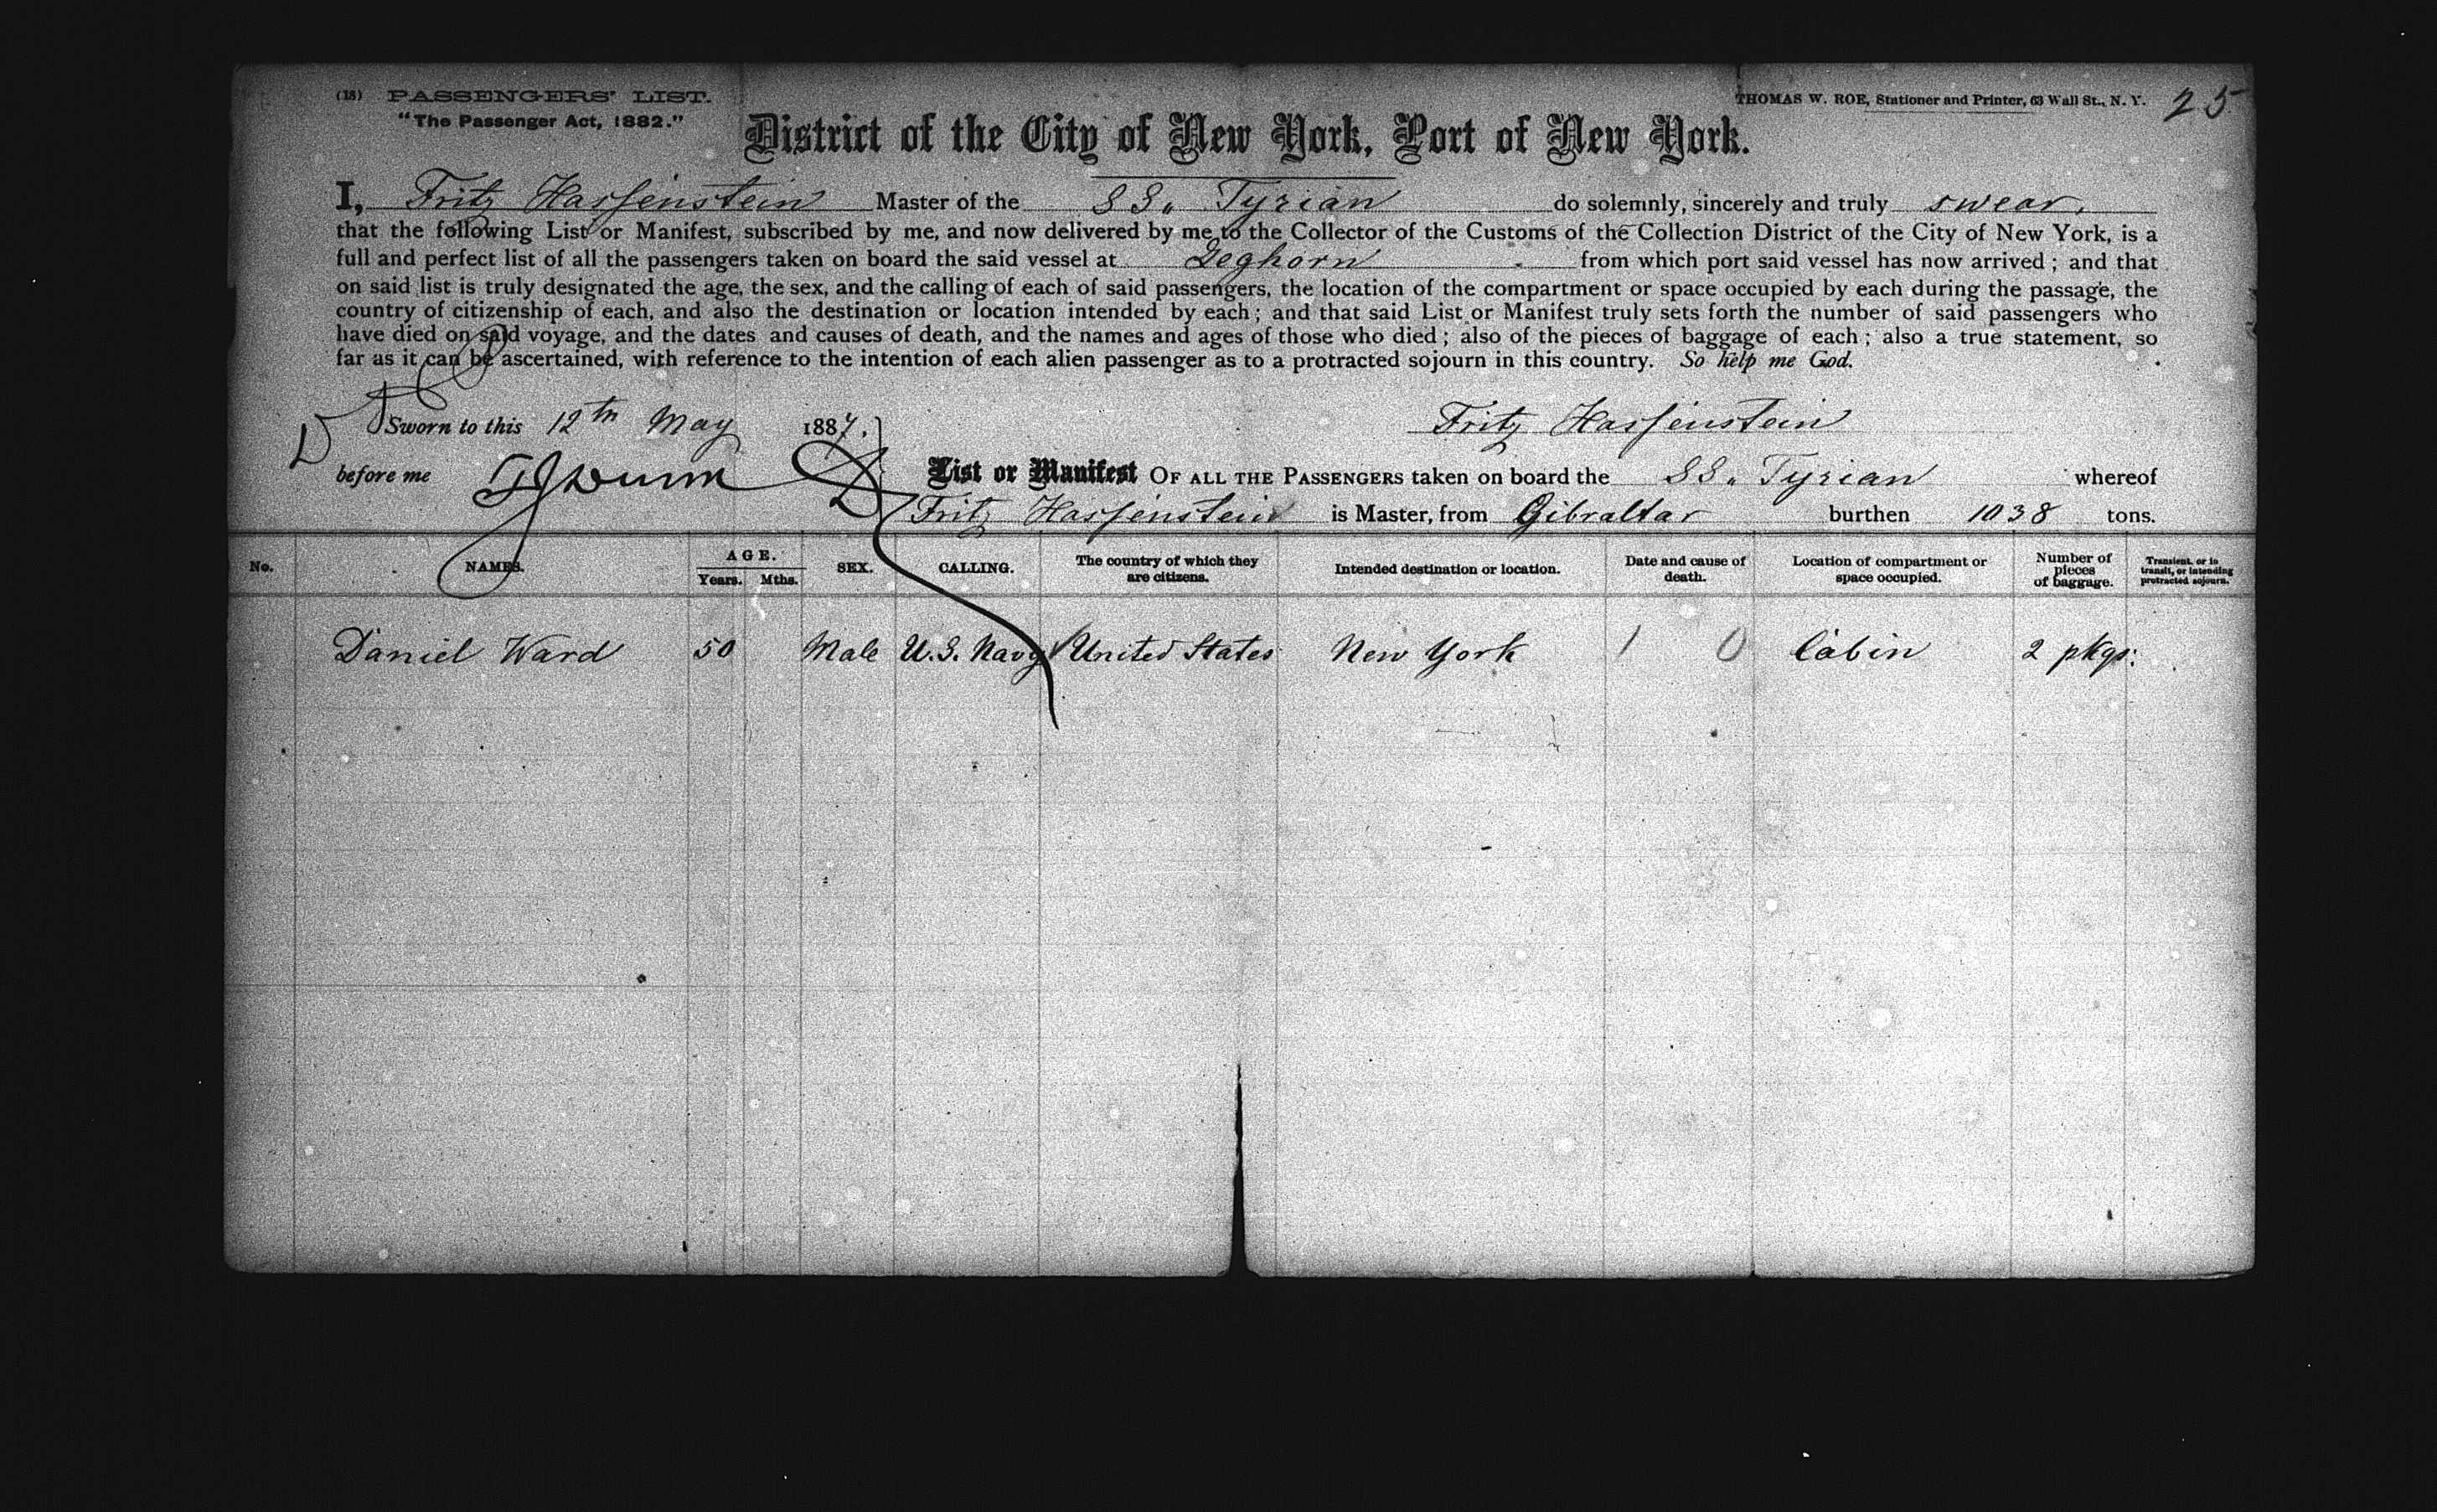 (18) PASSENGERS' LIST.
"The Passenger Act, 1882."
THOMAS W. ROE, Stationer and Printer, 63 Wall St., N. Y.
25
District of the City of New York, Port of New York.
I, Fritz Hassenstein Master of the SS. Tyrian do solemnly, sincerely and truly swear,
that the following List or Manifest, subscribed by me, and now delivered by me to the Collector of the Customs of the Collection District of the City of New York, is a
full and perfect list of all the passengers taken on board the said vessel at Leghorn from which port said vessel has now arrived; and that
on said list is truly designated the age, the sex, and the calling of each of said passengers, the location of the compartment or space occupied by each during the passage, the
country of citizenship of each, and also the destination or location intended by each; and that said List or Manifest truly sets forth the number of said passengers who
have died on said voyage, and the dates and causes of death, and the names and ages of those who died; also of the pieces of baggage of each; also a true statement, so
far as it can be ascertained, with reference to the intention of each alien passenger as to a protracted sojourn in this country. So help me God.
Sworn to this 12th May 1887. Fritz Hassenstein
before me
List or Manifest OF ALL THE PASSENGERS taken on board the SS. Tyrian whereof
Fritz Hassenstein is Master, from Gibraltar burthen 1038 tons.
No. NAMES. AGE. Years. Mths. SEX. CALLING. The country of which they are citizens. Intended destination or location. Date and cause of death. Location of compartment or space occupied. Number of pieces of baggage. Transient, or in transit, or intending protracted sojourn.
Daniel Ward 50 Male U.S. Navy United States New York 1 0 Cabin 2 pkgs: